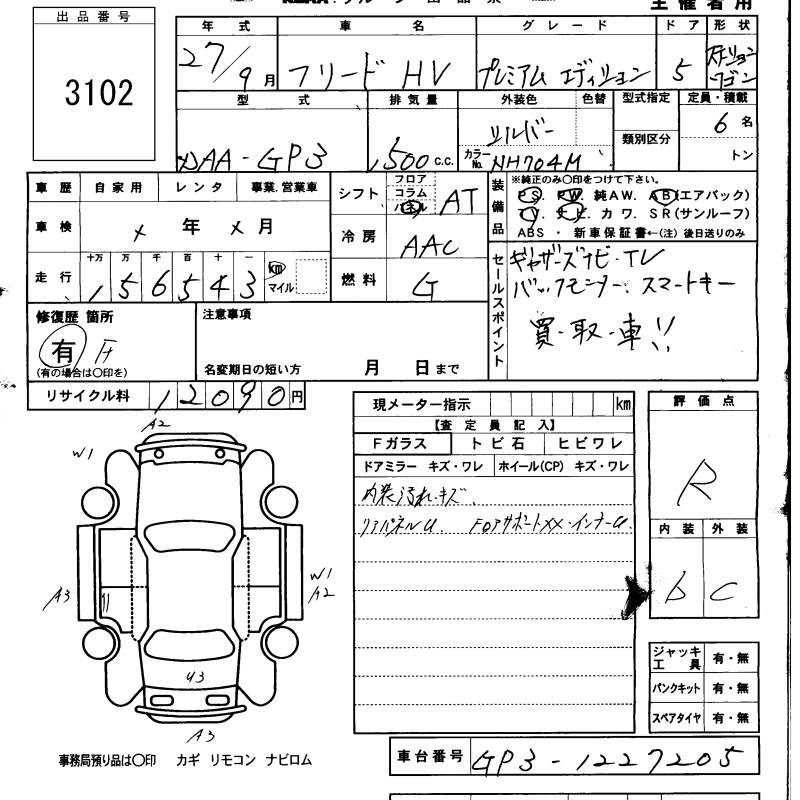 主催者用
出品番号
3102
年式 車名 グレード ドア 形状
27/9月 フリード HV プレミアム エディション 5 ステーションワゴン
型式 排気量 外装色 色替 型式指定 定員・積載
類別区分
DAA-GP3 1,500 c.c. シルバー カラーNo. NH704M 6名
トン
車歴 自家用 レンタ 事業.営業車
車検 × 年 × 月
走行 十万 万 千 百 十 一 km マイル
156543
シフト フロア コラム パネル AT
冷房 AAC
燃料 G
装備品
※純正のみ○印をつけて下さい。
PS. PW. 純AW. AB(エアバック)
TV. ナビ. カワ. SR(サンルーフ)
ABS・新車保証書←(注) 後日送りのみ
セールスポイント
ギャザーズナビ・TV
バックモニター、スマートキー
買・取・車!!
修復歴 箇所
有
(有の場合は○印を)
注意事項
名変期日の短い方 月 日まで
リサイクル料 12090円
現メーター指示 km
【査定員記入】
Fガラス トビ石 ヒビワレ
ドアミラー キズ・ワレ ホイール(CP) キズ・ワレ
内装汚れ・キズ、
リアパネルU. FロアサポートXX・インナーU.
評価点
R
内装 外装
b C
ジャッキ工具 有・無
パンクキット 有・無
スペアタイヤ 有・無
A2
W1
A3
W1
A2
U3
A3
事務局預り品は○印 カギ リモコン ナビロム
車台番号 GP3-1227205